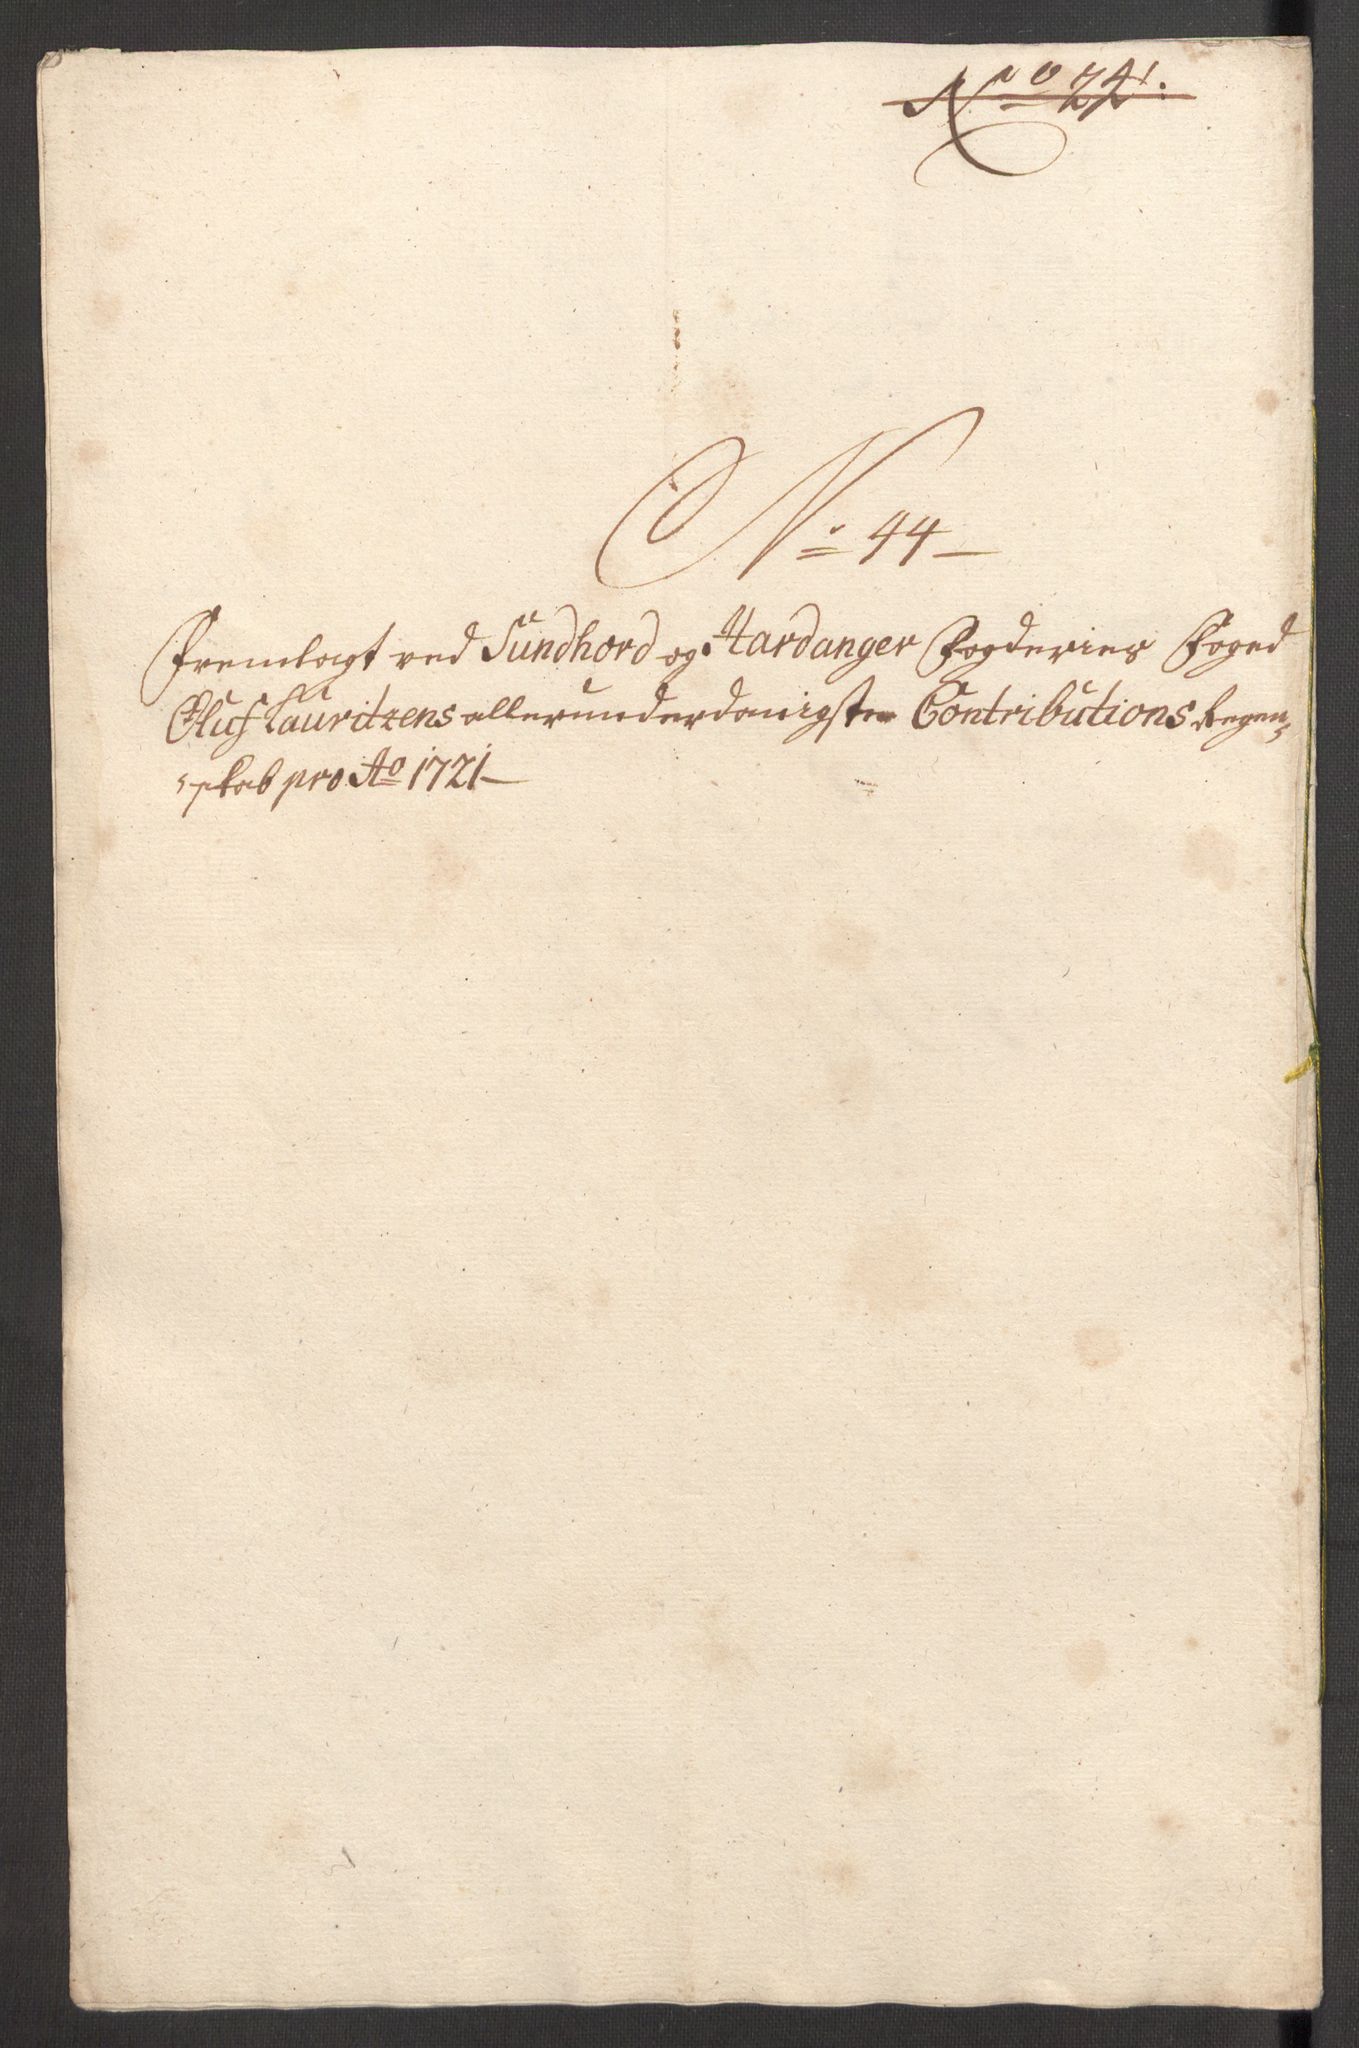 No 24:
No 44
Fremlagt ved Sundhord og Hardanger Fogderies Foged
Oluf Lauritzens allerunderdanigste Contributions Regen-
skab pro Ao 1721